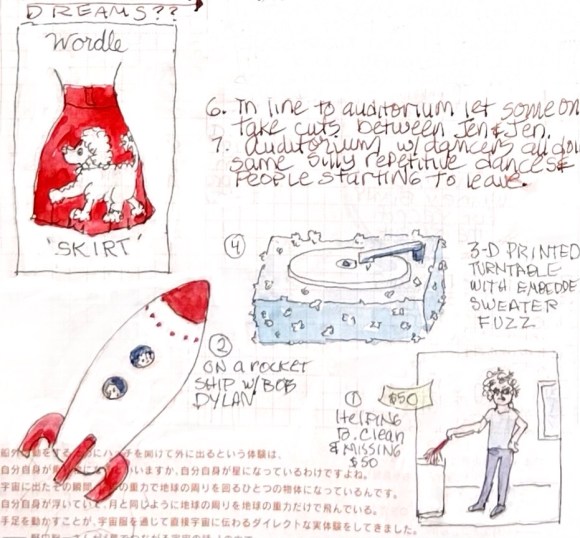 DREAMS??
Wordle
"SKIRT"
6. In line to auditorium let someon
take cuts between Jen & Jen.
7. auditorium w/dancers all doi
same silly repetitive dances &
People starting to leave.
4
3-D PRINTED
TURNTABLE
WITH EMBEDDE
SWEATER
FUZZ
2
ON a rocket
SHIP w/BOB
DYLAN
1
$50
Helping
B. Clean
& MISSING
$50
ハッチを開けて外に出るという体験は、
自分自身が いいますか、自分自身が星になっているわけですよね。
宇宙に出たその瞬間 の重力で地球の周りを回るひとつの物体になっているんです。
自分自身が浮いていて、月と同じように地球の重力だけで飛んでいる。
手足を動かすことが、宇宙服を通じて直接宇宙に伝わるダイレクトな実体験をしてきました。